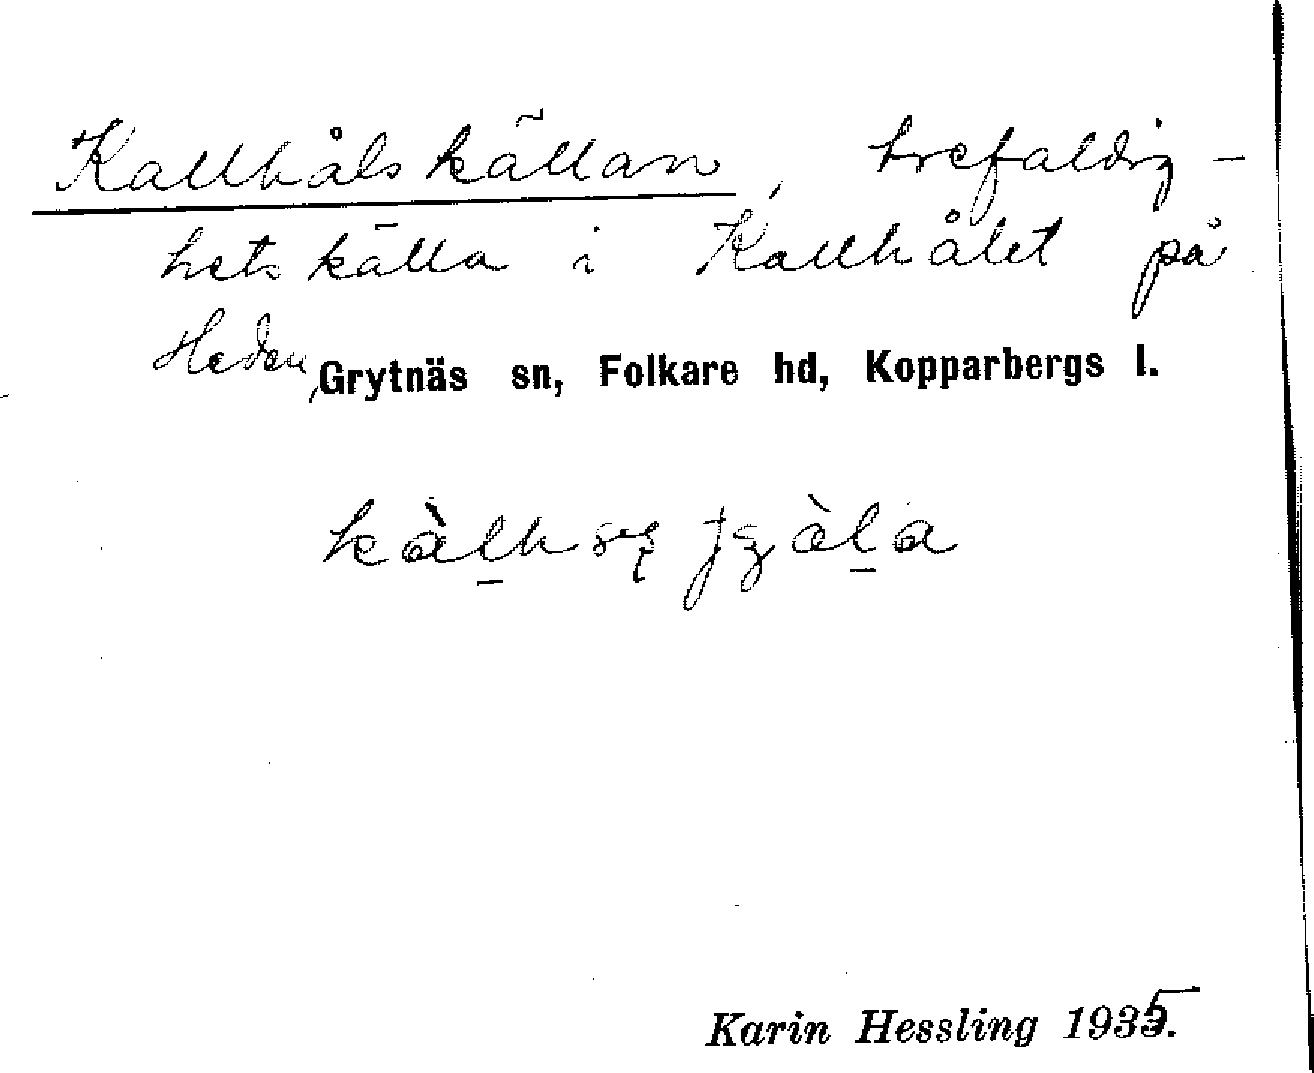 Kallhålskällan, trefaldig-
hetskälla i Kallhålet på
Heden, Grytnäs sn, Folkare hd, Kopparbergs l.
Karin Hessling 1935.